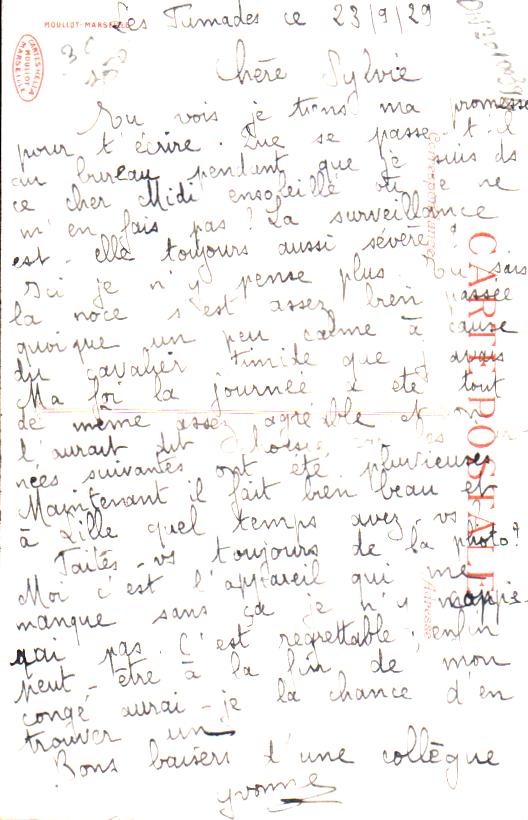 MOULLOT-MARSEILLE
CARTES HELIA
MOULLOT
MARSEILLE
Les Fumades ce 23/9/29
Chère Sylvie
Tu vois je tiens ma promesse
pour t'écrire. Que se passe-t-il
au bureau pendant que je suis ds
ce cher Midi ensoleillé où je ne
m'en fais pas? La surveillance
est-elle toujours aussi sévère?
Ici je n'y pense plus. Tu sais
la noce s'est assez bien passée
quoique un peu calme à cause
du cavalier timide que j'avais
Ma foi la journée a été tout
de même assez agréable et on
l'aurait dit choisie car les jour-
nées suivantes ont été pluvieuses
Maintenant il fait bien beau et
à Lille quel temps avez-vs
Faites-vs toujours de la photo?
Moi c'est l'appareil qui me
manque sans ça je n'y
pas. C'est regrettable, enfin
peut-être à la fin de mon
congé aurai-je la chance d'en
trouver un
Bons baisers d'une collègue
Yvonne
CARTE POSTALE
Correspondance
Adresse